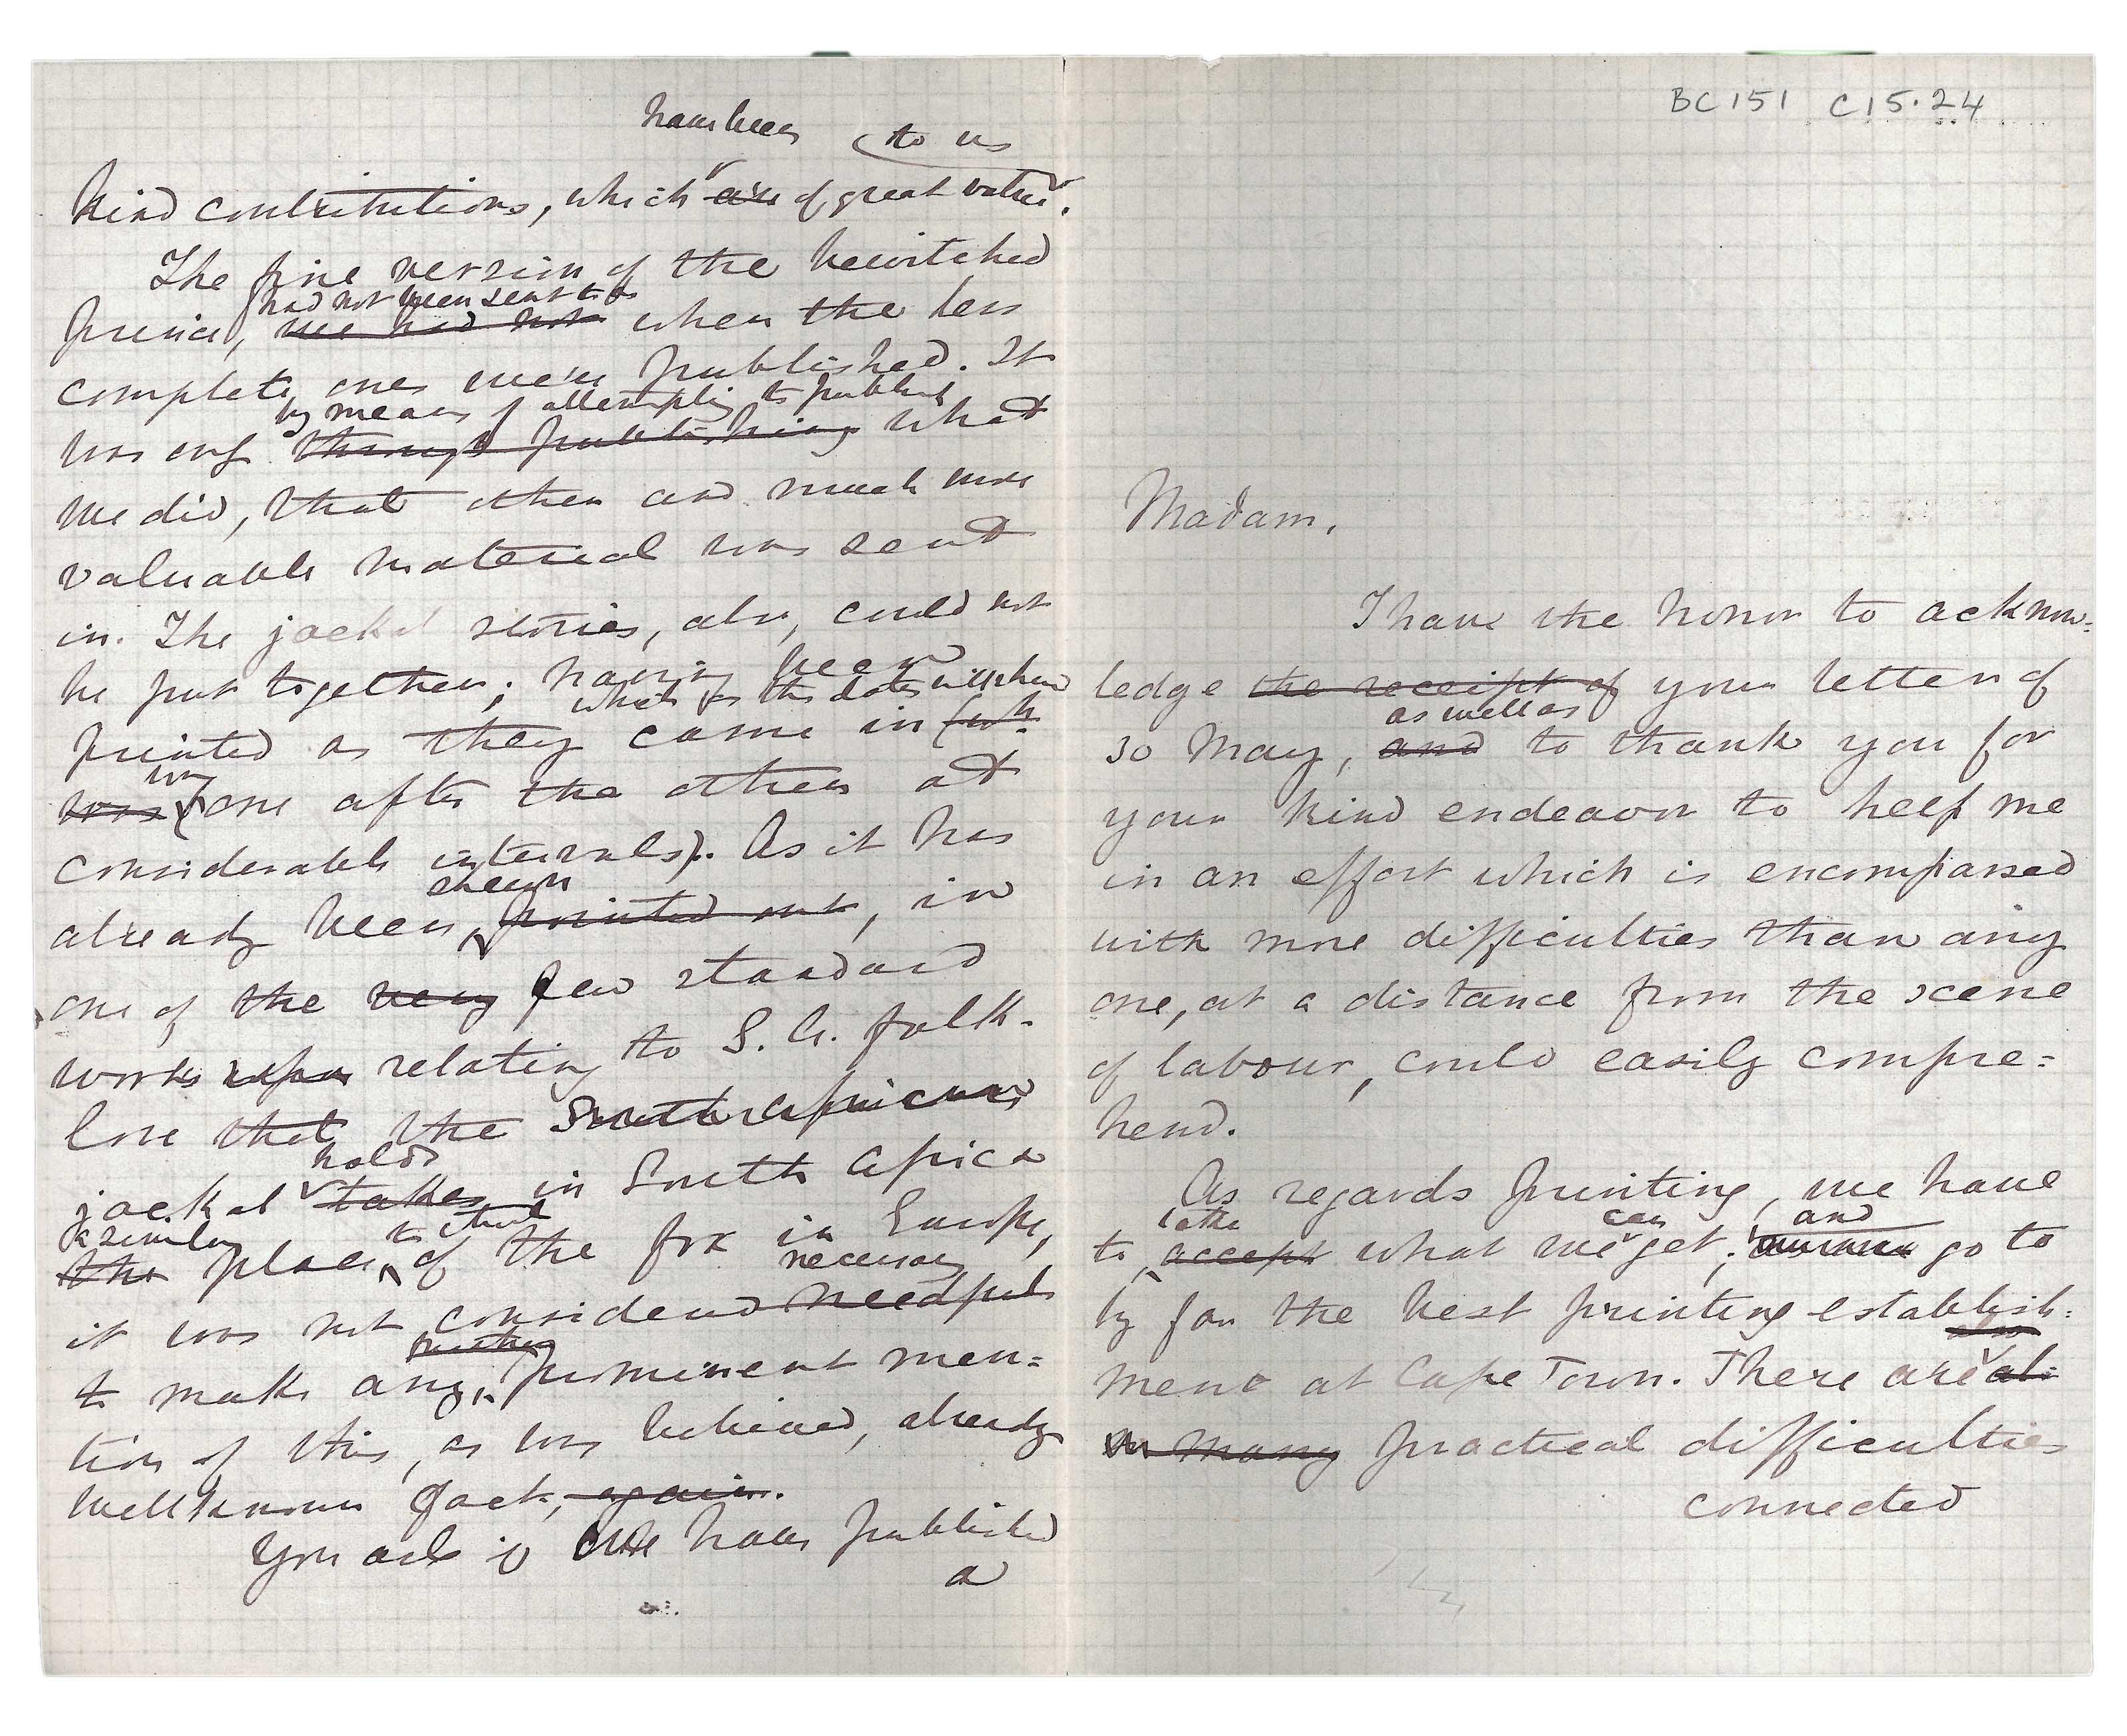 BC 151 C15.24
Madam,
I have the honor to acknow:
ledge the receipt of your letter of
as well as
30 May, and to thank you for
your kind endeavor to help me
in an effort which is encompassed
with more difficulties than any
one, at a distance from the scene
of labour, could easily compre:
hend.
As regards printing, we have
take can and
to accept what we get, go to
by far the best printing establish:
ment at Cape Town. There are al:
so many practical difficulties
connected
have been to us
kind contributions, which are of great value.
The fine version of the bewitched
had not been sent to us
prince, we had not when the less
complete ones were published. It
by means of attempting to publish
was only through publishing what
we did, that other and much more
valuable material was sent
in. The jackal stories, also, could not
be put together; having been
which as the dates will show
printed as they came in (wh.
was (one after the other at
considerable intervals). As it has
shewn
already been, pointed out, in
one of the very few standard
works upon relating to S. A. folk-
lore that the South African
holds
jackal takes in South Africa
a similar to that
the place, of the fox in Europe,
necessary
it was not considered needful
to make any further prominent men:
tion of this, as was believed, already
wellknown fact, again.
You ask if we have published
a